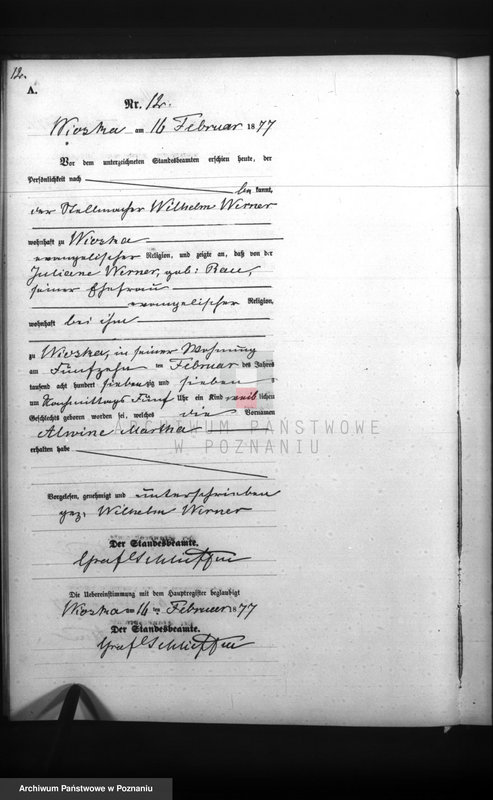 12.
A.
Nr. 12.
Wioska am 16 Februar 1877
Vor dem unterzeichneten Standesbeamten erschien heute, der
Persönlichkeit nach
be kannt,
der Stellmacher Wilhelm Werner
wohnhaft zu Wioska
evangelischer Religion, und zeigte an, daß von der
Juliane Werner, geb: Rau,
seiner Ehefrau
evangelischer Religion,
wohnhaft bei ihm
zu Wioska, in seiner Wohnung
am Fünfzehn ten Februar des Jahres
tausend acht hundert sieben zig und sieben
um Nachmittags Fünf Uhr ein Kind weib lichen
Geschlechts geboren worden sei, welches die Vornamen
Alwine Martha
erhalten habe
ARCHIWUM PAŃSTWOWE
W POZNANIU
Vorgelesen, genehmigt und unterschrieben
gez. Wilhelm Werner
Der Standesbeamte.
Graf Schlieffen
Die Uebereinstimmung mit dem Hauptregister beglaubigt
Wioska am 16 ten Februar 1877
Der Standesbeamte.
Graf Schlieffen
Archiwum Państwowe w Poznaniu